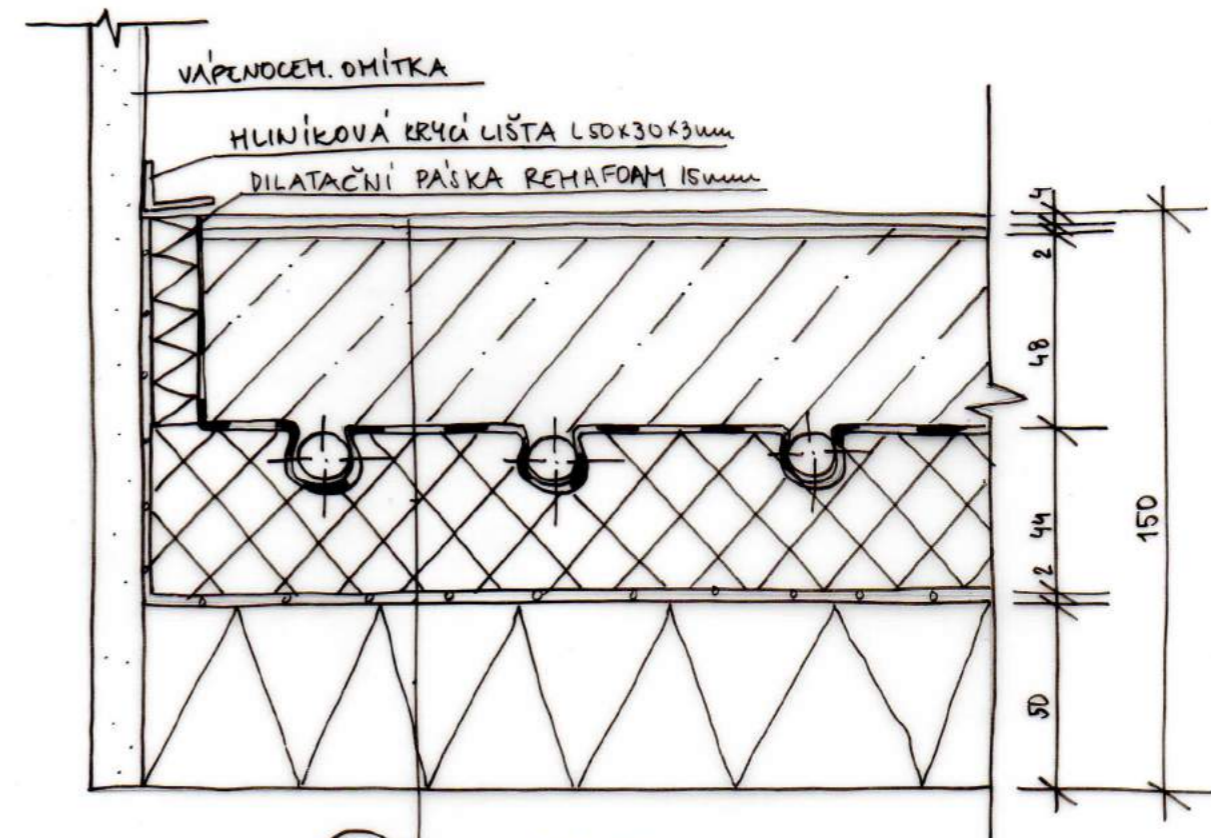 VÁPENOCEM. OMÍTKA
HLINÍKOVÁ KRYCÍ LIŠTA L50x30x3mm
DILATAČNÍ PÁSKA REMAFOAM 15mm
4
2
48
44
2
50
150